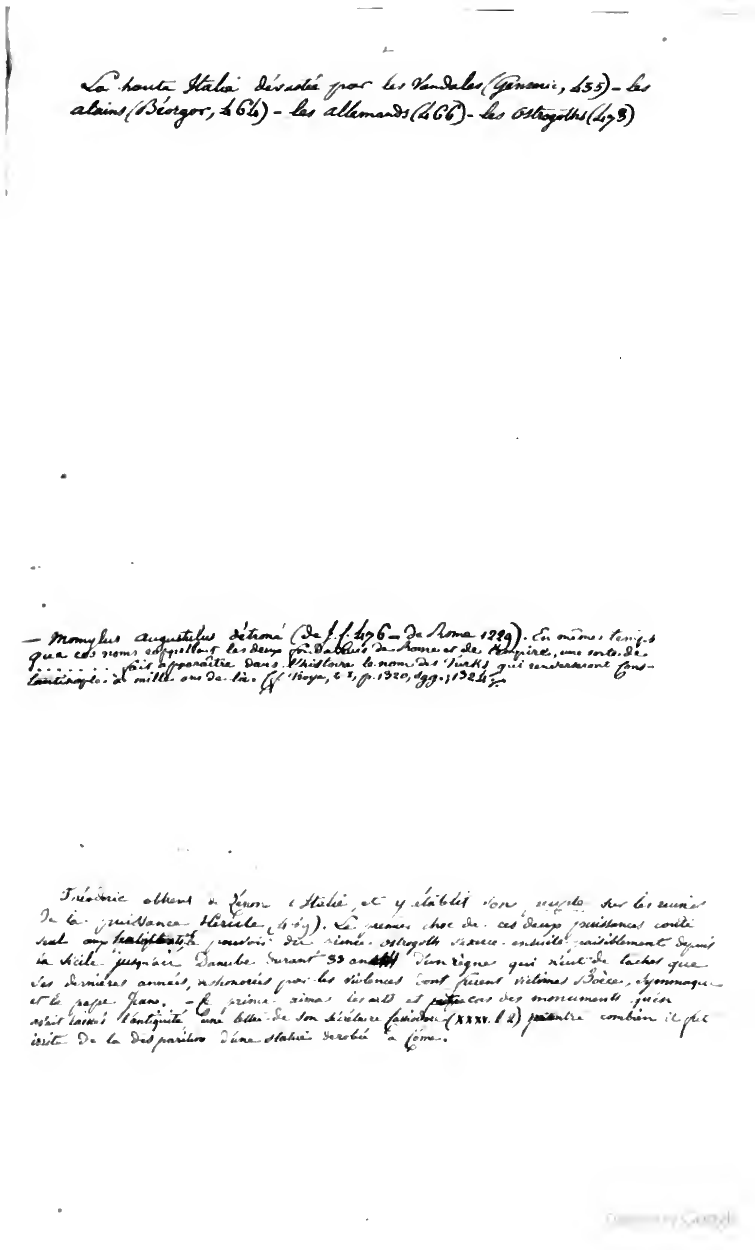 La haute Italie dévastée par les Vandales (Genseric, 455) – les
alains (Béorgor, 464) – les allemands (466) – les Ostrogoths (473)
— Momylus augustulus détroné (de J. C. 476 – de Rome 1229). En même temps
que ces noms rappellent les deux de Rome et de l'empire, une sorte de
. . . . . . . fait apparaître dans l'histoire le nom des Turks qui renverseront Cons-
tantinople à mille ans de là. (Cf. p. 1320, sqq. ; 1324)
Théodoric obtient de Zénon l'Italie, et y établit son peuple sur les ruines
de la puissance Hérule (489). Le premier choc de ces deux puissances coûte
seul aux le pouvoir du ostrogoth s'exerce ensuite paisiblement depuis
la Sicile jusqu'au Danube durant 33 ans d'un règne qui n'eut de taches que
ses dernières années, déshonorées par les violences dont furent victimes Boèce, Symmaque
et le pape Jean. – Ce prince aima les arts et fit cas des monuments qu'en
avait laissés l'antiquité une lettre de son secrétaire Cassiodore (XXXV. l 2) montre combien il fut
irrité de la disparition d'une statue dérobée à Come.
Google